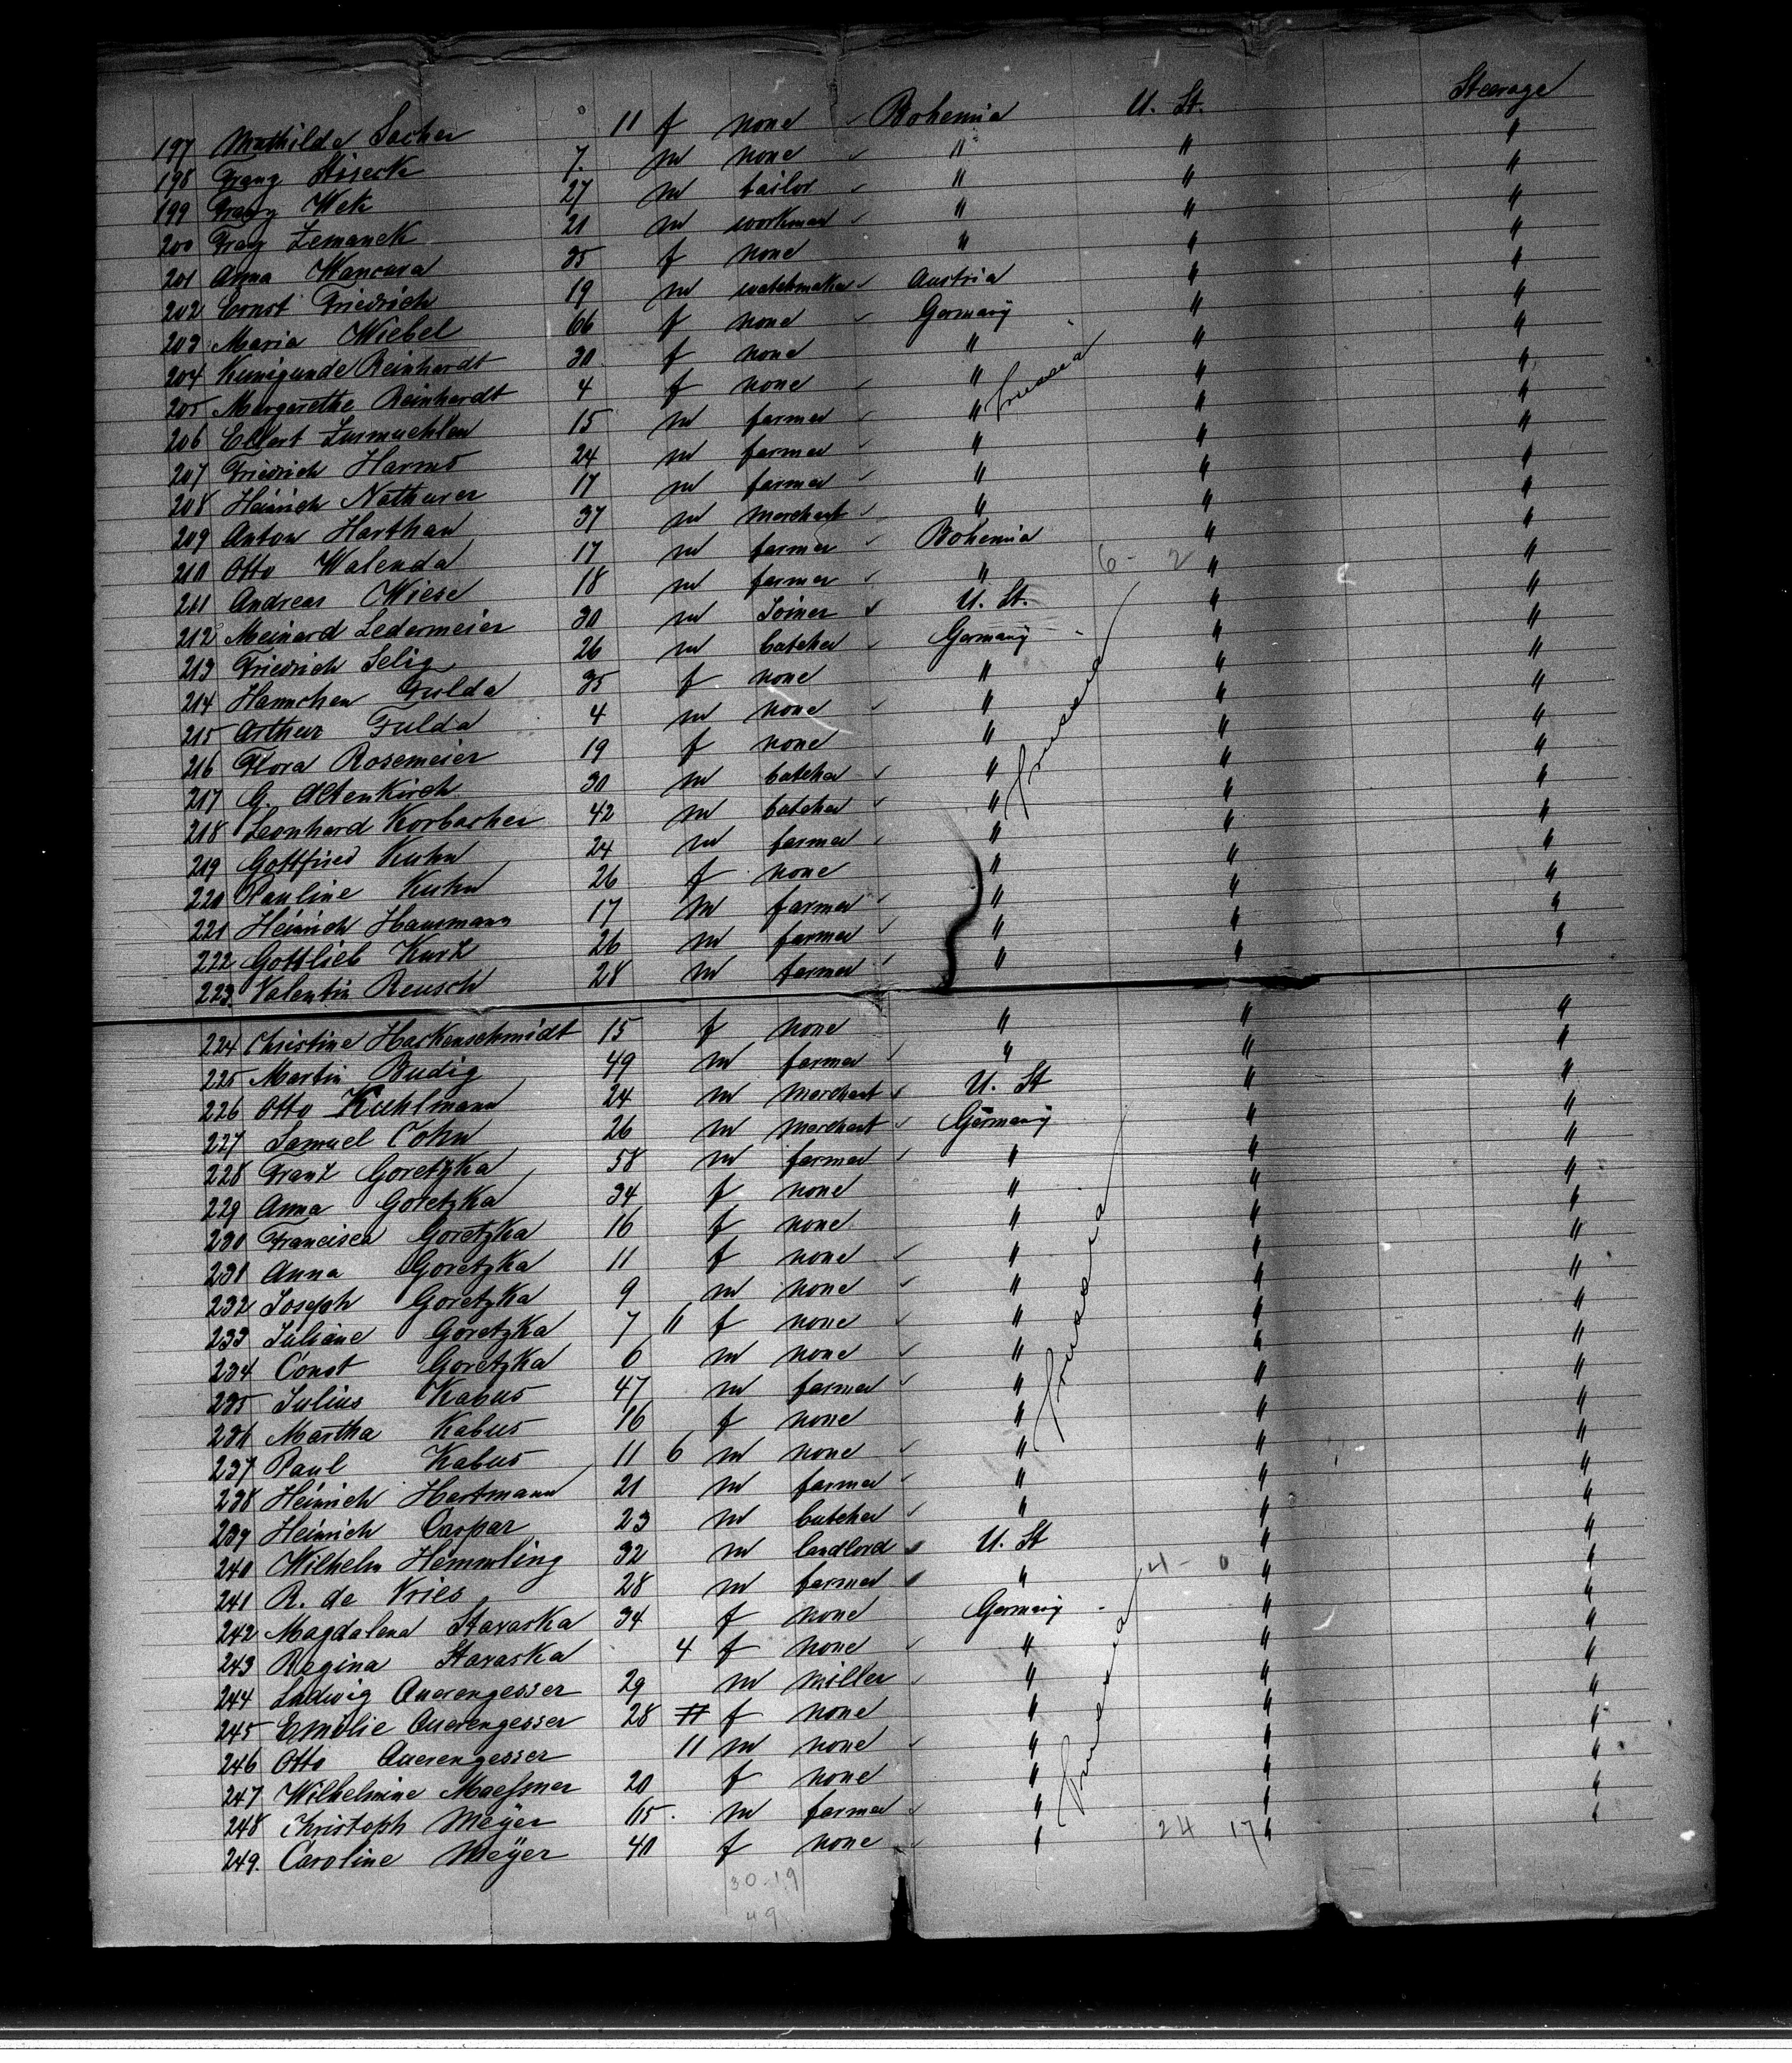 197 Mathilde Sacher 11 f none Bohemia U. St. Steerage
198 Franz 7. m none " " "
199 Franz Wek 27 m tailor " " "
200 Franz Zemanek 21 m workman " " "
201 Anna Wancara 35 f none " " "
202 Ernst Friedrich 19 m watchmaker Austria " "
203 Maria Wiebel 66 f none Germany " "
204 Kunigunde Reinhardt 30 f none " " "
205 Margarethe Reinhardt 4 f none " " "
206 Ellert Zurmuehlen 15 m farmer " " "
207 Friedrich Harms 24 m farmer " " "
208 Heinrich Nathurer 17 m farmer " " "
209 Anton Harthan 37 m merchant " " "
210 Otto Walenda 17 m farmer Bohemia " "
211 Andreas Wiese 18 m farmer " 6 - 2 " "
212 Meinard Ledermeier 30 m Joiner U. St. " "
213 Friedrich Selig 26 m butcher Germany " "
214 Hannchen Fulda 35 f none " " "
215 Arthur Fulda 4 m none " " "
216 Flora Rosemeier 19 f none " " "
217 G. Altenkirch 30 m butcher " " "
218 Leonhard Korbacher 42 m butcher " " "
219 Gottfried Kuhn 24 m farmer " " "
220 Pauline Kuhn 26 f none " " "
221 Heinrich Hausmann 17 m farmer " " "
222 Gottlieb Kurz 26 m farmer " " "
223 Valentin Reusch 28 m farmer " " "
224 Christine Hackenschmidt 15 f none " " "
225 Martin Budig 49 m farmer " " "
226 Otto Kuhlmann 24 m merchant U. St " "
227 Samuel Cohn 26 m merchant Germany " "
228 Franz Goretzka 58 m farmer " " "
229 Anna Goretzka 34 f none " " "
230 Francisca Goretzka 16 f none " " "
231 Anna Goretzka 11 f none " " "
232 Joseph Goretzka 9 m none " " "
233 Juliane Goretzka 7 11 f none " " "
234 Const Goretzka 6 m none " " "
235 Julius Kabus 47 m farmer " " "
236 Martha Kabus 16 f none " " "
237 Paul Kabus 11 6 m none " " "
238 Heinrich Hartmann 21 m farmer " " "
239 Heinrich Caspar 23 m butcher " " "
240 Wilhelm Hemmling 32 m landlord U. St " "
241 R. de Vries 28 m farmer " 4 - 0 " "
242 Magdalena Staraska 34 f none Germany " "
243 Regina Staraska 4 f none " " "
244 Ludwig Querengesser 29 m miller " " "
245 Emilie Querengesser 28 f none " " "
246 Otto Querengesser 11 m none " " "
247 Wilhelmine Maeßner 20 f none " " "
248 Christoph Meÿer 65. m farmer " " "
249. Caroline Meÿer 40 f none " 24 17 "
30-19
49